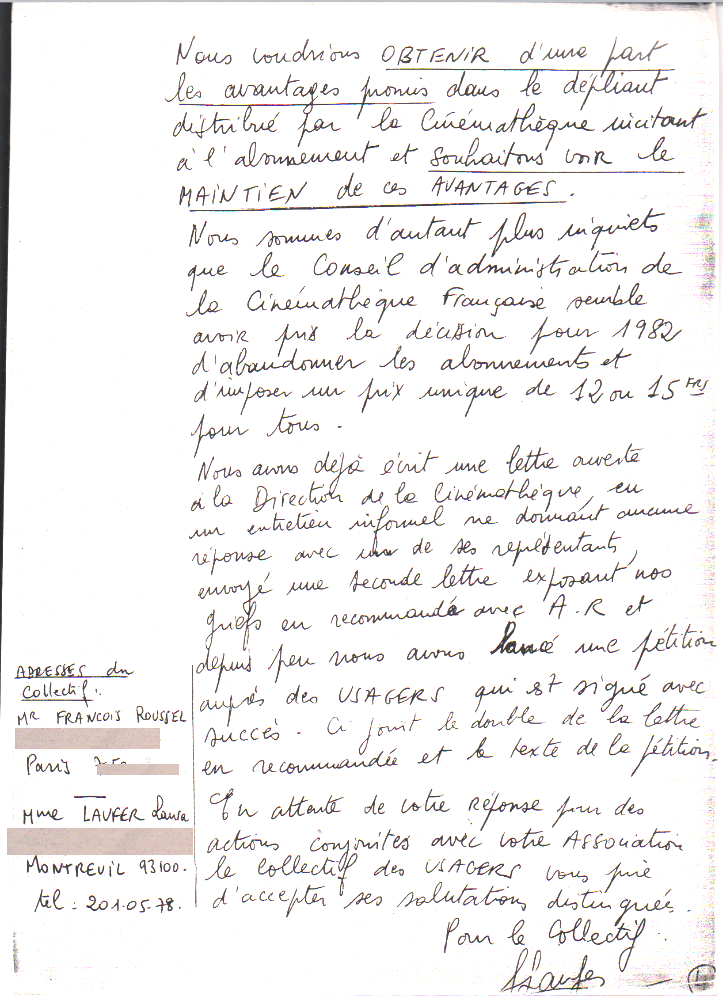 Nous voudrions OBTENIR d'une part
les avantages promis dans le dépliant
distribué par la Cinémathèque incitant
à l'abonnement et souhaitons voir le
MAINTIEN de ces AVANTAGES.
Nous sommes d'autant plus inquiets
que le Conseil d'administration de
la Cinémathèque Française semble
avoir pris la décision pour 1982
d'abandonner les abonnements et
d'imposer un prix unique de 12 ou 15 FRS
pour tous.
Nous avons déjà écrit une lettre ouverte
à la Direction de la Cinémathèque, eu
un entretien informel ne donnant aucune
réponse avec un de ses représentants,
envoyé une seconde lettre exposant nos
griefs en recommandé avec A.R et
depuis peu nous avons lancé une pétition
auprès des USAGERS qui est signé avec
succès. Ci joint le double de la lettre
en recommandée et le texte de la pétition.
En attente de votre réponse pour des
actions conjointes avec votre ASSOCIATION
le collectif des USAGERS vous prie
d'accepter ses salutations distinguées.
Pour le Collectif.
ADRESSES du
Collectif:
MR FRANCOIS ROUSSEL
Paris
Mme LAUFER Laura
MONTREUIL 93100.
tel : 201.05.78.